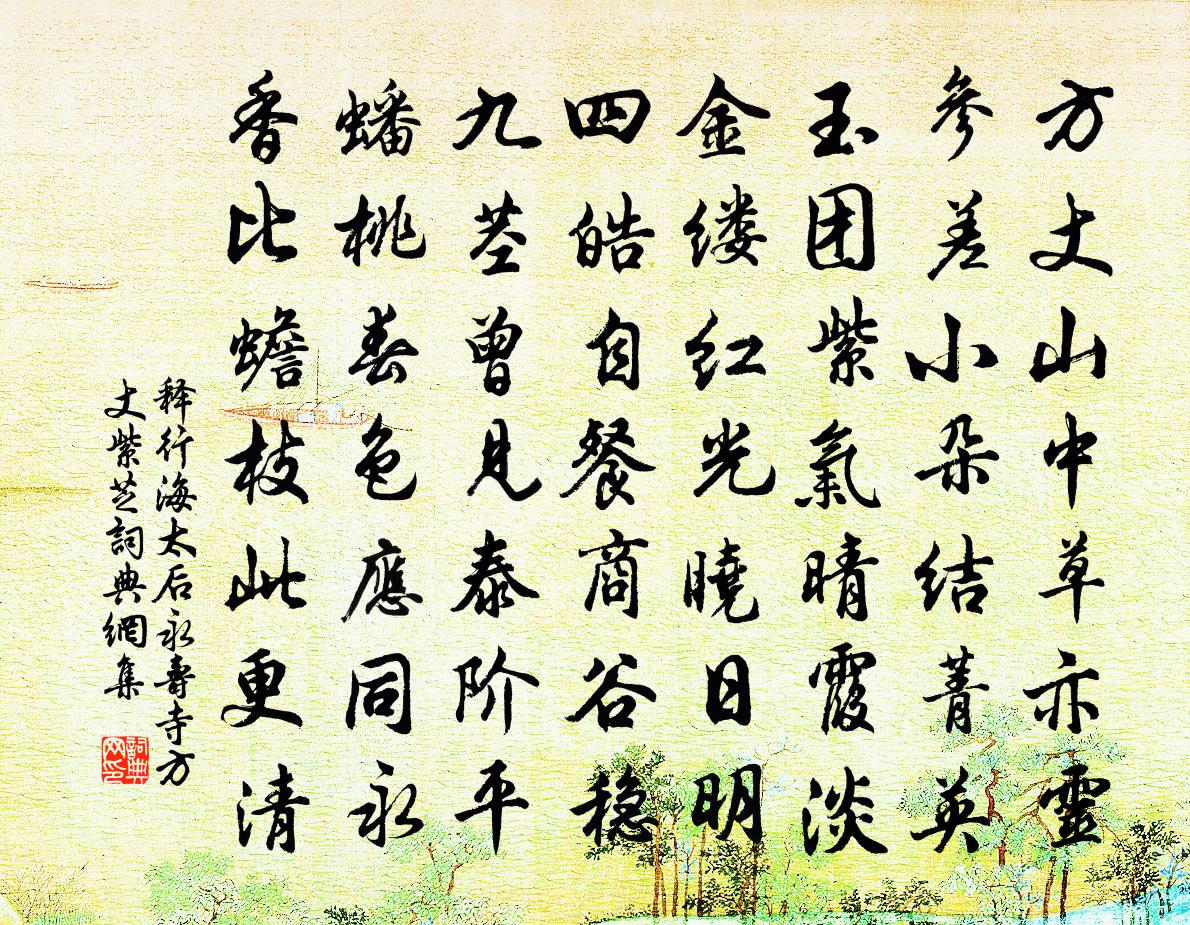 方丈山中草亦靈
參差小朵结菁英
玉团紫氣晴霞淡
金缕红光曉日明
四皓自餐商谷稳
九茎曾見泰阶平
蟠桃春色應同永
香比蟾枝此更清
释行海太后永壽寺方
丈紫芝詞典網集
詞典
网印